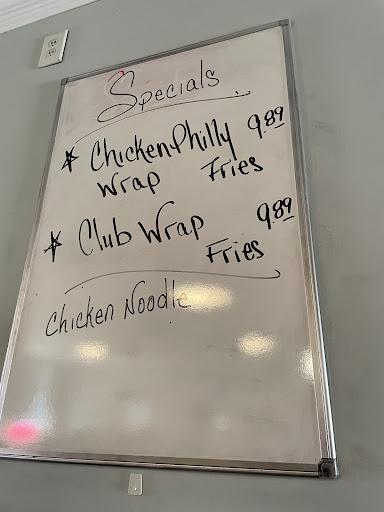 Specials
* Chicken Philly 9.89
Wrap Fries
* Club Wrap 9.89
Fries
Chicken Noodle